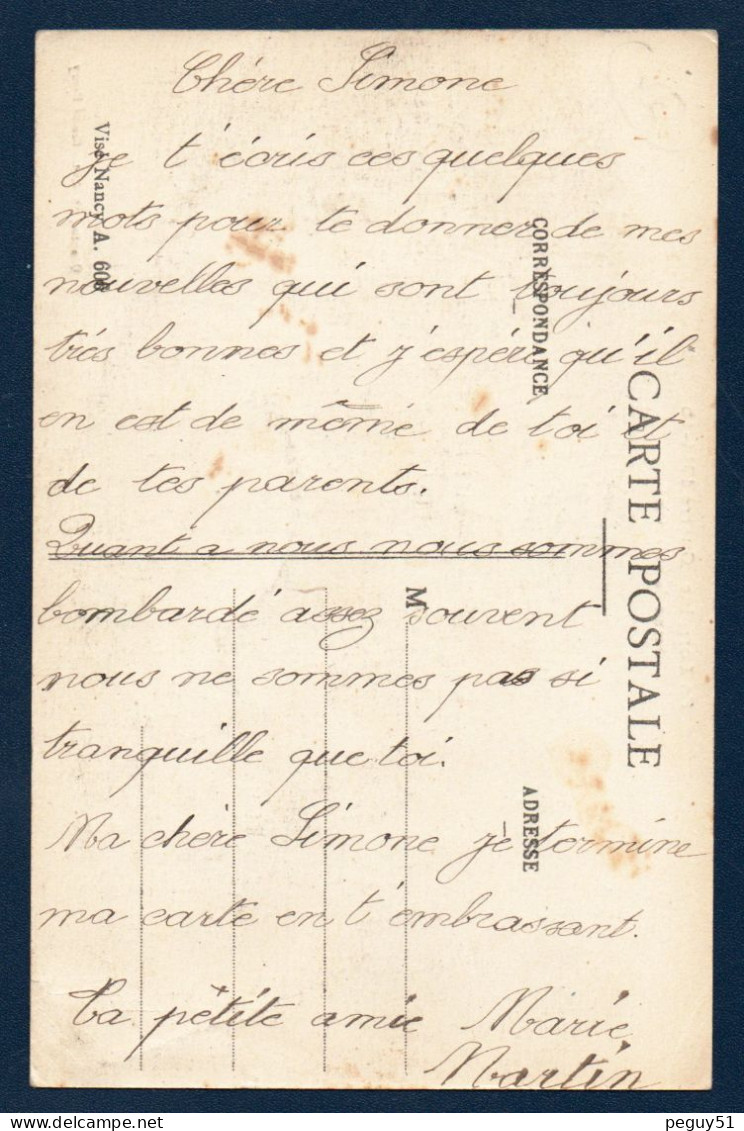 Chère Simone
Je t'écris ces quelques
mots pour te donner de mes
nouvelles qui sont toujours
très bonnes et j'espère qu'il
en est de même de toi et
de tes parents.
Quant a nous nous sommes
bombardé assez souvent
nous ne sommes pas si
tranquille que toi.
Ma chère Simone je termine
ma carte en t'embrassant.
Ta pètite amie Marie
Martin
CARTE POSTALE
CORRESPONDANCE
ADRESSE
M
Visé Nancy A. 606
peguy51